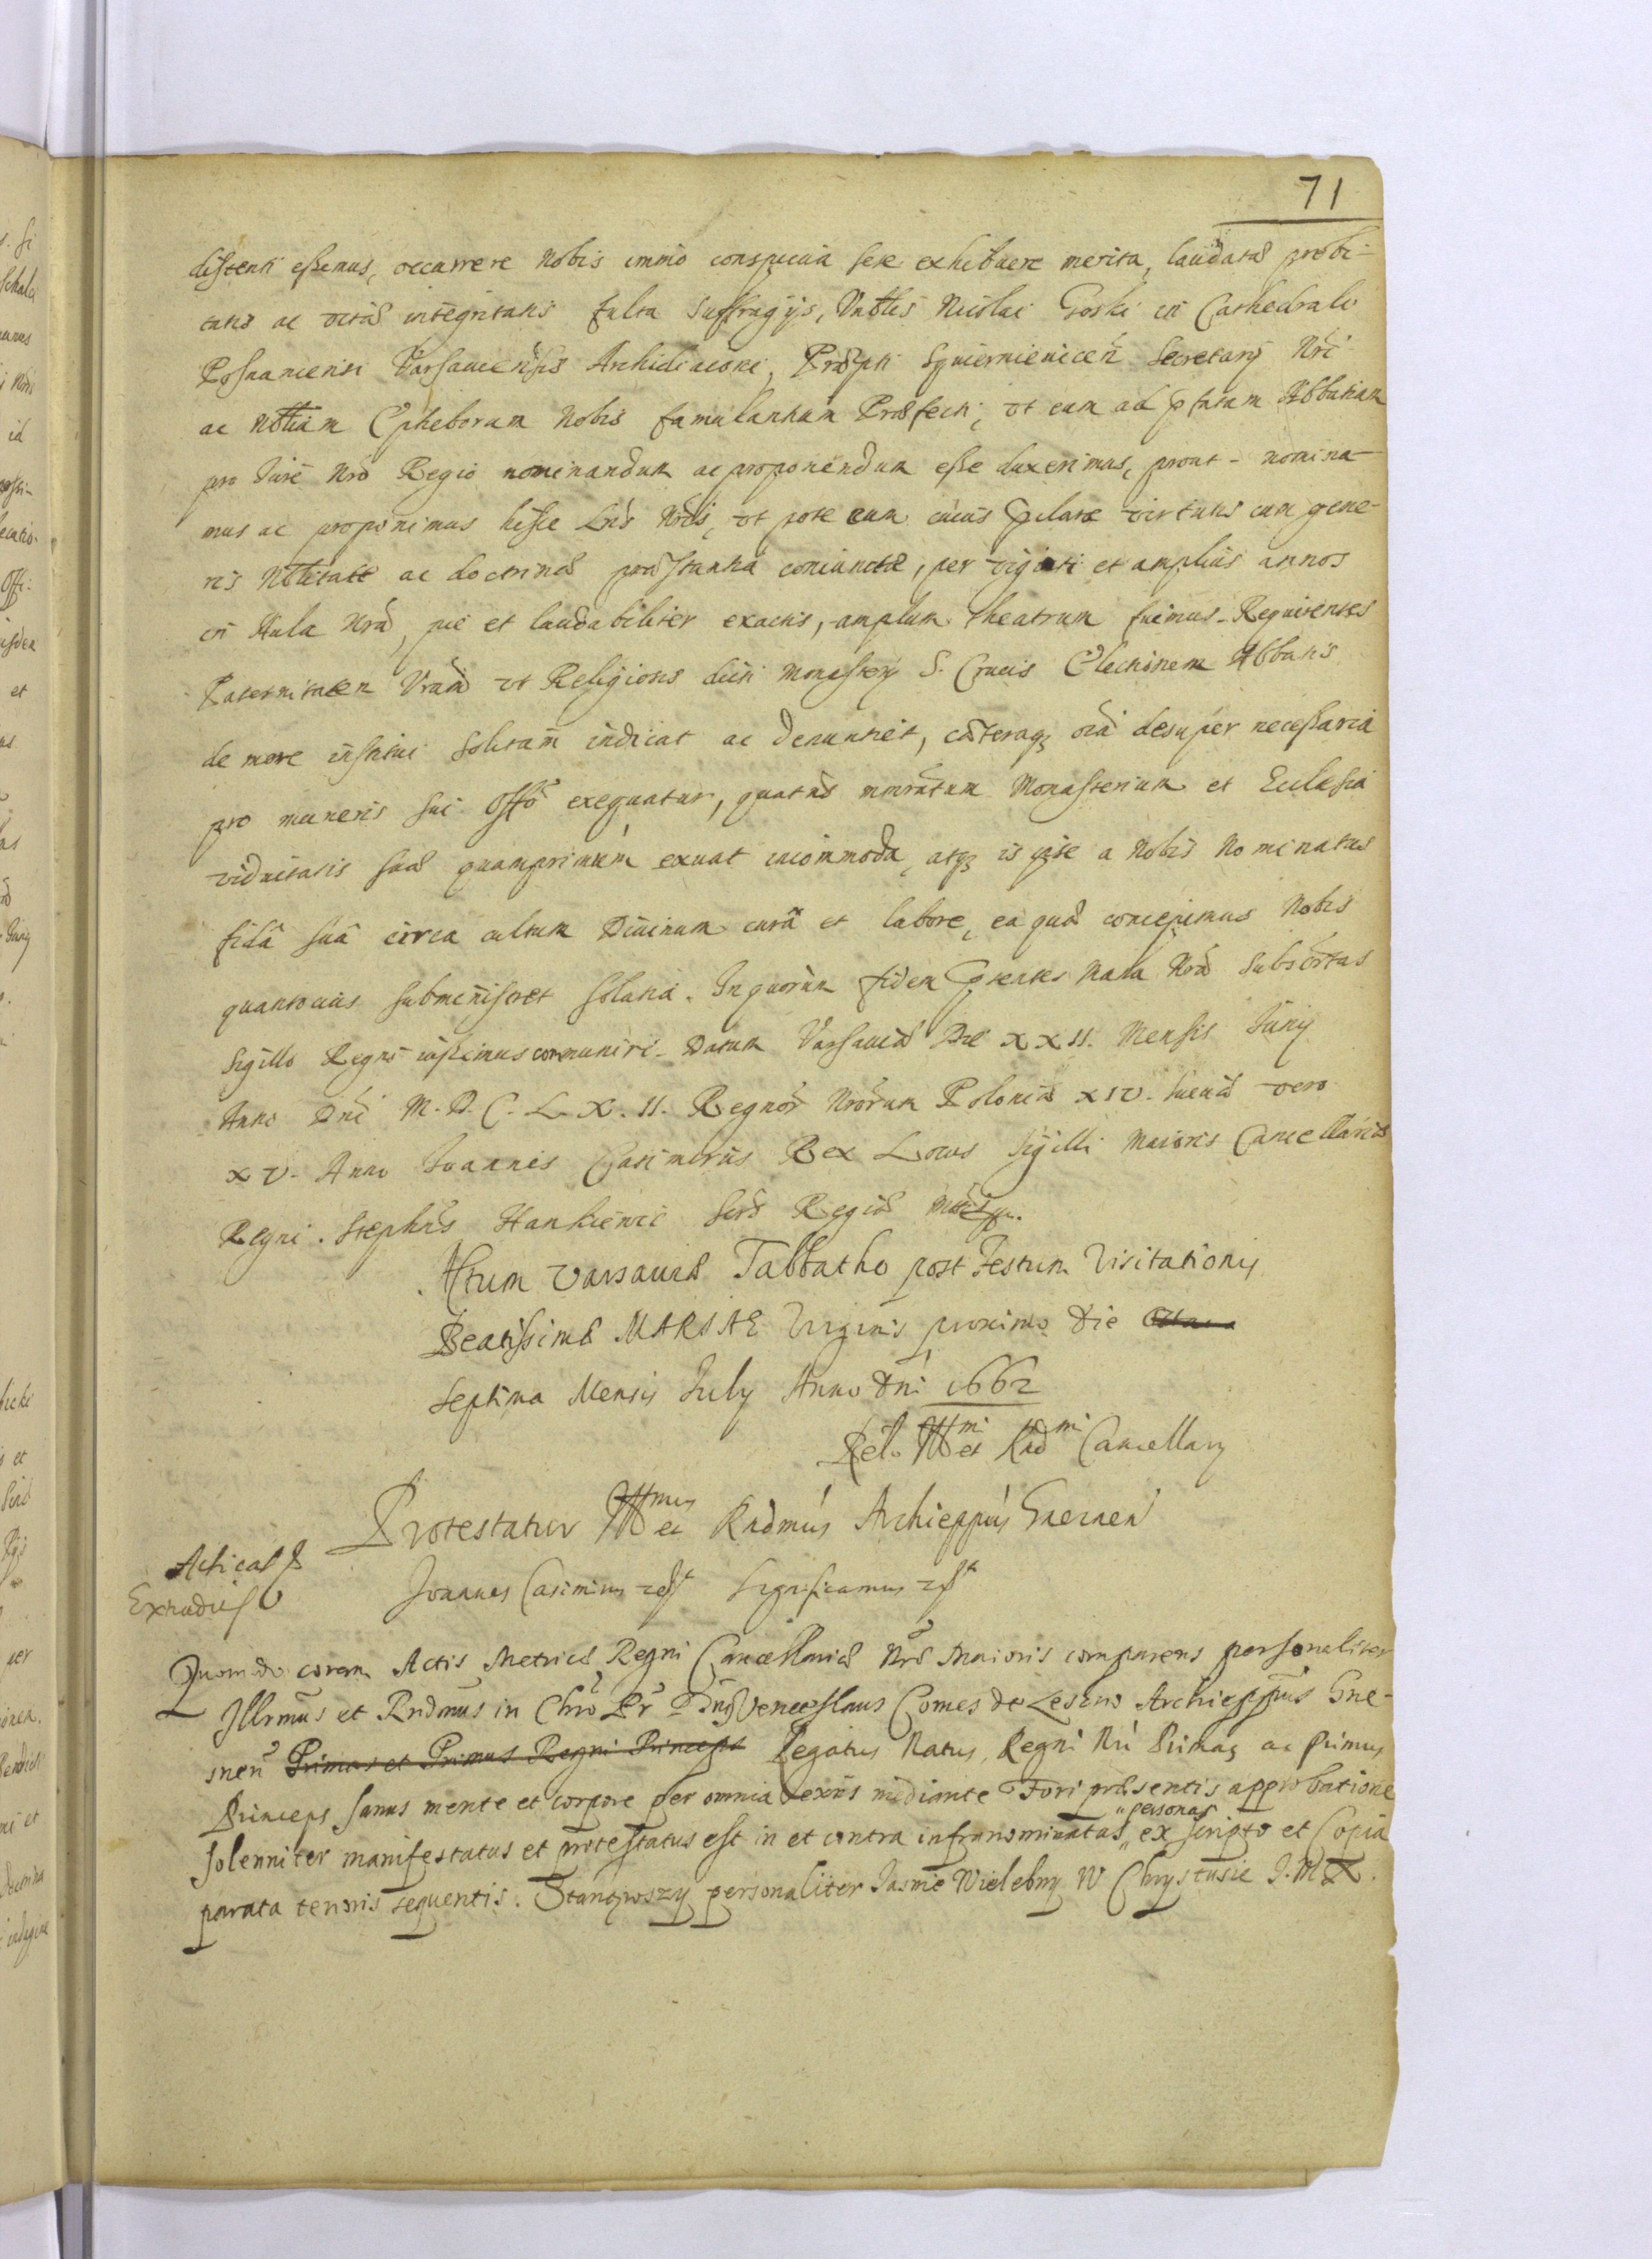 71
distenti essemus, occurrere Nobis immo conspicua sese exhibuere merita, laudatæ probi-
tatis ac vitæ integritatis fulta suffragijs, Vnblis Nicolai Goski in Cathedrali
Posnaniensi Varsaviensis Archidiaconi, Præpti Squierniewicen Secretarij Nri
ac Nblium Epheborum Nobis famulantium Præfecti, vt eum ad pfatam Abbatiam
pro Iure Nro Regio nominandum ac proponendum esse duxerimus, prout nomina-
mus ac proponimus hisce Lris Nris, vt pote cum cuius pclaræ virtutis cum gene-
ris Nblitate ac doctrinæ præstantia coniunctæ, per viginti et amplius annos
in Aula Nra, pie et laudabiliter exactis, amplum theatrum fuimus. Requirentes
Paternitatem Vram vt Religiosis dicti Monasterij S. Crucis Electionem Abbatis
de more institui solitam indicat ac denuntiet, cæteraqz oia desuper necessaria
pro muneris sui Offo exequatur, quatenus mmratum Monasterium et Ecclesia
viduitatis suæ quamprimum exuat incommoda, atqz is ipse a Nobis Nominatus
fidâ suâ circa cultum Diuinum curâ et labore, ea quæ concepimus Nobis
quantocius subministret solatia. In quorum fidem pntes Manu Nra Subscrtas
Sigillo Regni iussimus communiri. Datum Varsaviæ Die XXII. Mensis Iunij
Anno Dni M.D.C.L.X.II. Regnor Nrorum Poloniæ XIV. Sueciæ vero
XV. Anno Ioannes Casimirus Rex Locus Sigilli Maioris Cancellariæ
Regni. Stephns Hankiewic Srs Regiæ Mttis
Actum Varsaviæ Sabbatho post Festum Visitationis
Beatissimæ MARIAE Virginis proximo die
Septima Mensis July Anno Dni 1662
Relo Illmi et Rndmi Cancellarij
Protestatur Illmus et Rndmus Archieppus Gnesnen
Acticat
Extradit
Joannes Casimirus Significamus
Quomodo coram Actis Metrices Regni Cancellariæ Nræ Maioris comparens personaliter
Illrmus et Rndmus in Chro Pr Dnus Venceslaus Comes de Leszno Archieppus Gne-
snen Primas et Primus Regni Princeps Legatus Natus, Regni Nri Primas ac Primus
Princeps sanus mente et corpore per omnia existens mediante Fori præsentis approbatione
personas
solenniter manifestatus et protestatus est in et contra infranominatas ex scripto et Copia
parata tenoris sequentis. Stanąwszy personaliter Jasnie Wielebny W Chrystusie J. M. X.